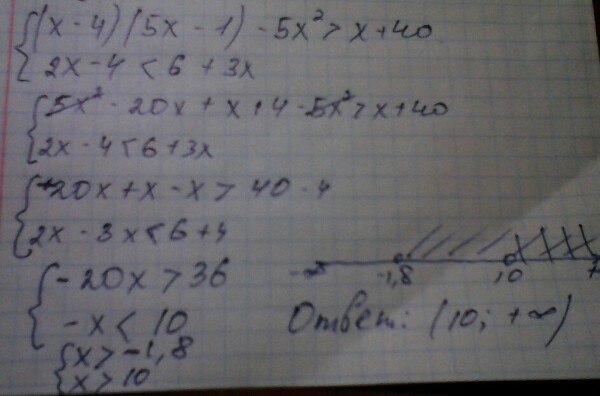 {(x-4)(5x-1)-5x²>x+40
{2x-4<6+3x
{5x²-20x+x+4-5x²>x+40
{2x-4<6+3x
{+20x+x-x>40-4
{2x-3x<6+4
{-20x>36
{-x<10
{x>-1,8
{x>10
-∞ -1,8 10 +
Ответ: (10; +∞)